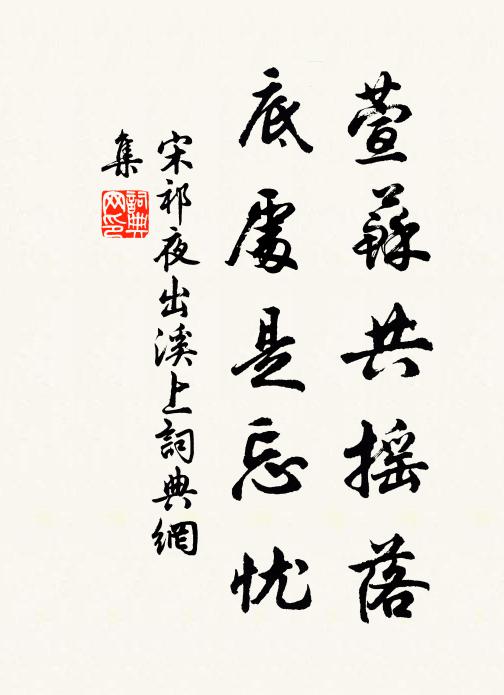 萱蘇共摇落
底處是忘忧
宋祁夜出溪上詞典網
集
詞典网印